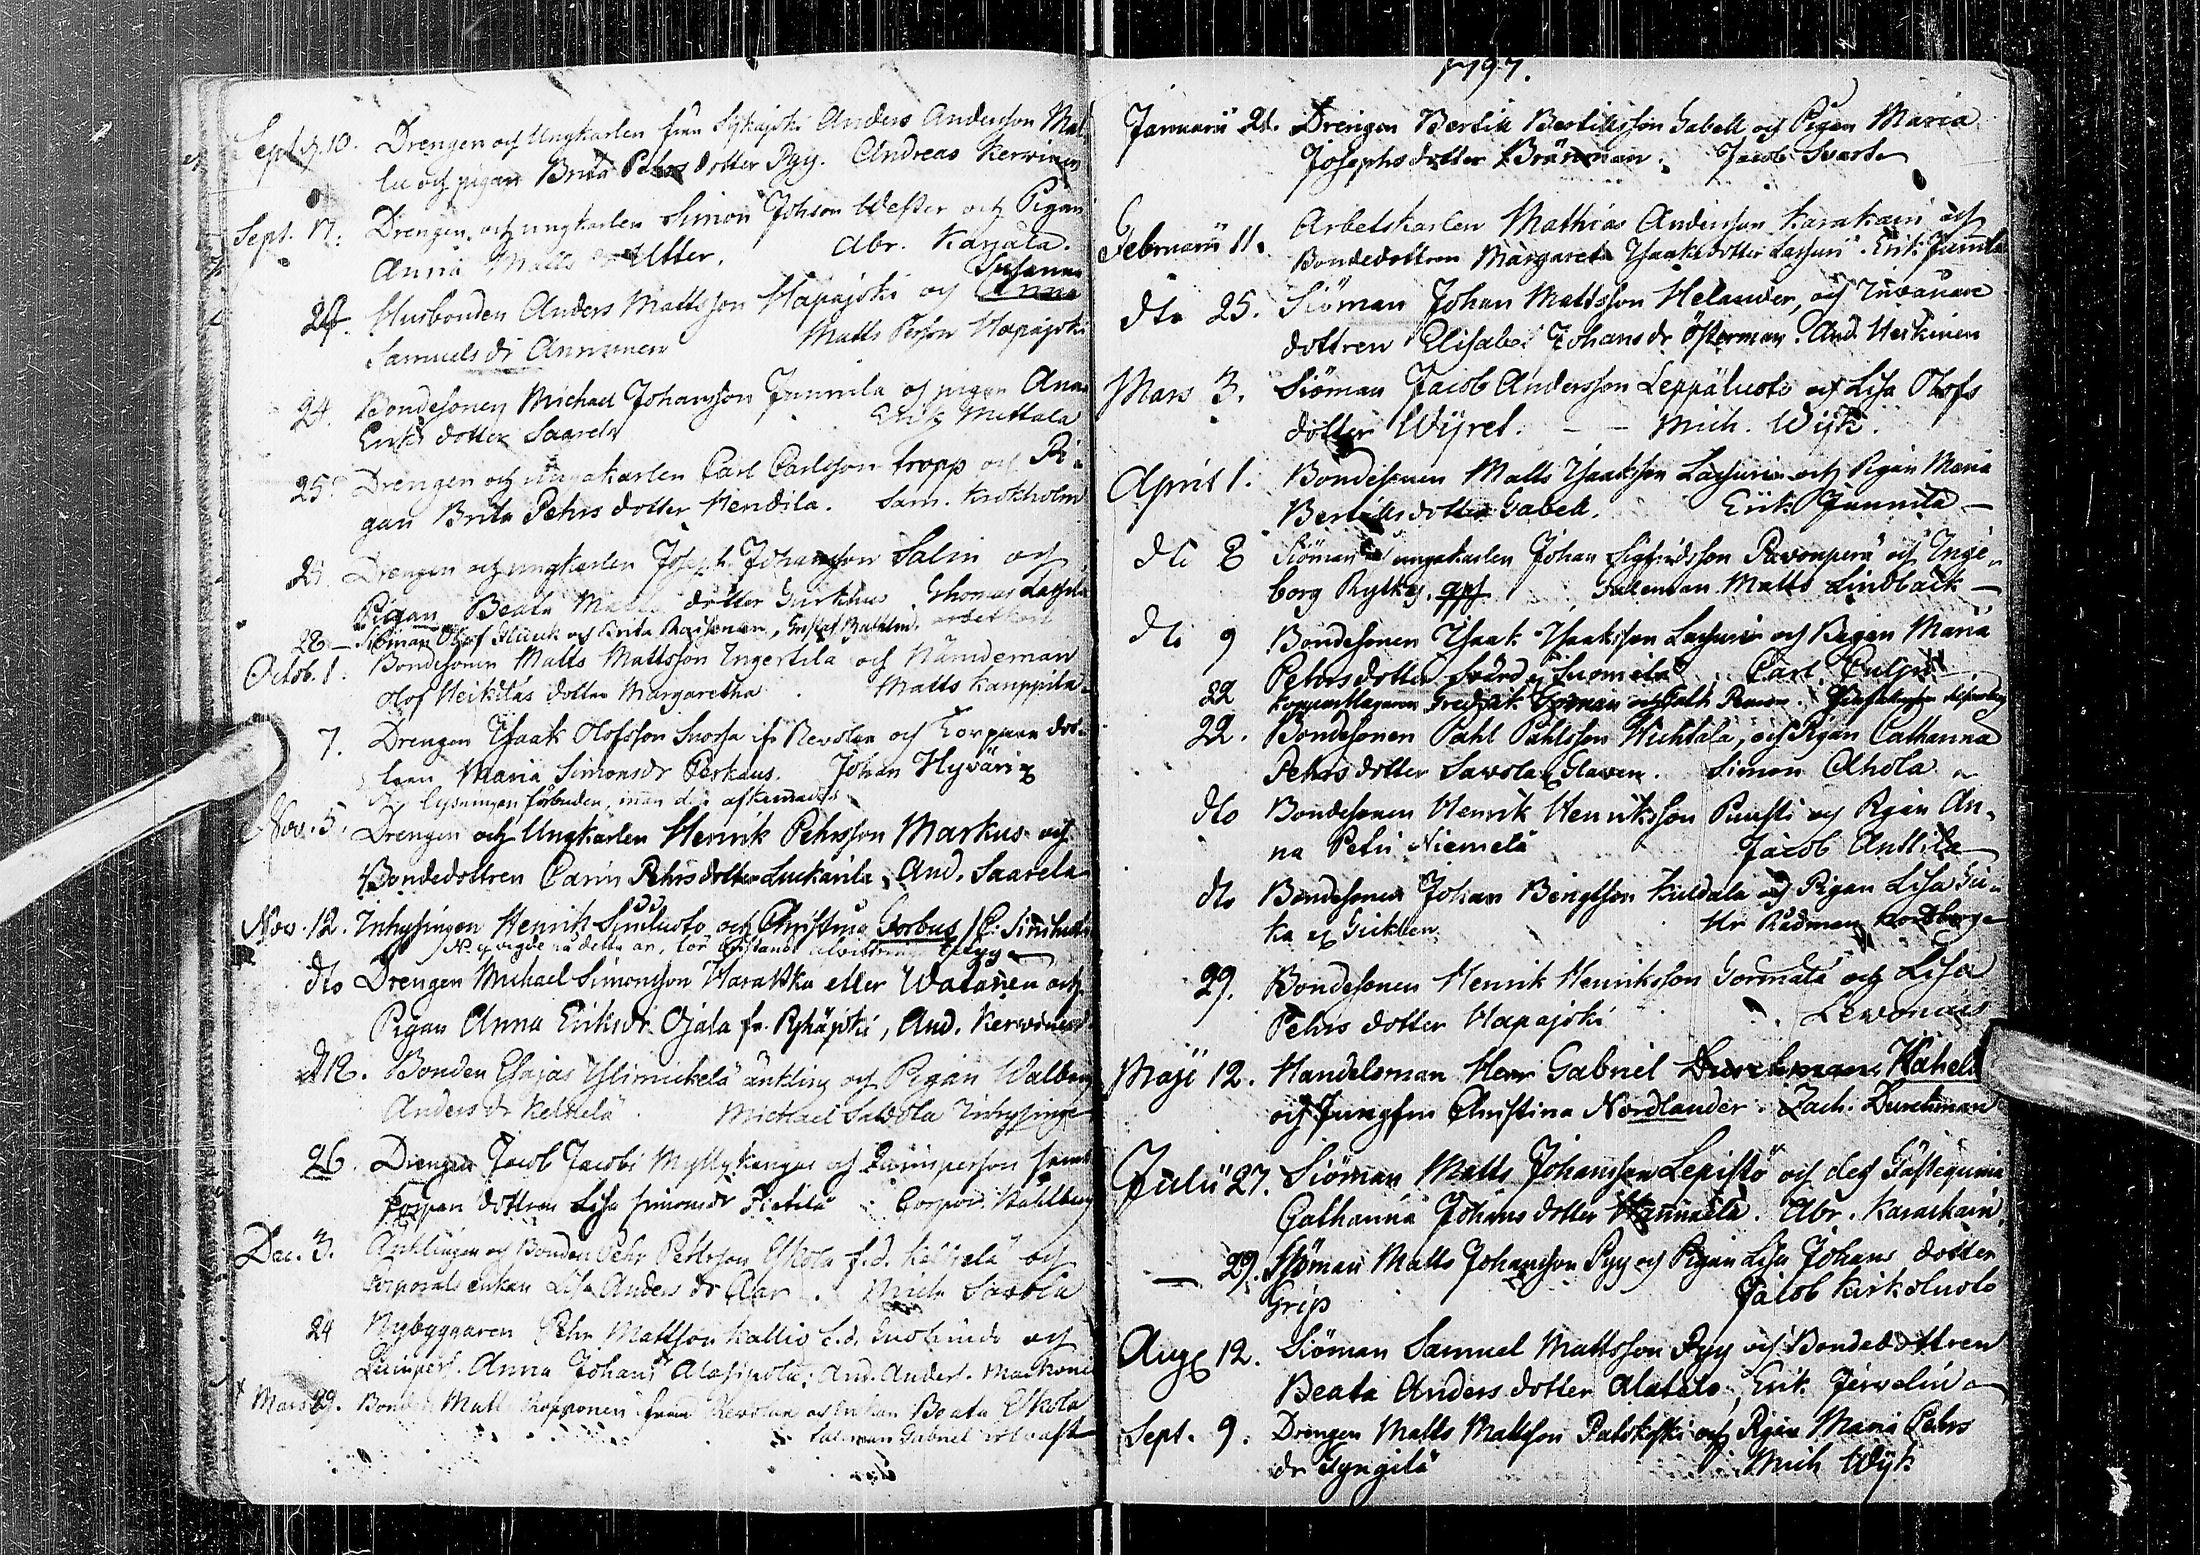 Sept. 10. Drengen och Ungkarlen från Sijkajoki Anders Andersson Mat
la och pigan Brita Pehrs dotter Pyy. Andreas Kerwinen
Sept. 17. Drengen och ungkarlen Simon Johsson Wester och Pigan
Anna Matts Utter. Abr. Karjala.
Susanna
24. Husbonden Anders Mattsson Hapajoki och Anna
Samuels dr Annunen Matts Persson Hapajoki
24. Bondesonen Michael Johansson Junnila och pigan Anna
Eriks dotter Saarela Erik Mattala
25. Drengen och ungkarlen Carl Carlsson tropp och Pi-
gan Brita Pehrs dotter Hendila. Sam. Krokholm
Drengen och ungkarlen Joseph Johansson Salin och
Pigan Beata Matts dotter Thomas
28 Siöman Olof Glück och Brita
Octob. 1. Bondesonen Matts Mattsson Ingertila och Nämdeman
Olof Heikiläs dotter Margaretha. Matts Kauppila
7. Drengen Isaak Olofsson Snosja ifr. Revolax och Torpare dot-
tern Maria Simonsdr Perkaus. Johan Hyväri
lysningen förbuden, men
Nov. 5. Drengen och Ungkarlen Henrik Pehrsson Markus och
Bondedottren Carin Pehrsdotter Luckarila, And. Saarela
Nov. 12. Inhysingen Henrik Siniluoto och Christina Gorbus /C. Siniluoto
dto Drengen Michael Simonsson Harakka eller Watanen och
Pigan Anna Eriksdr Ojala fr. And. Kerwinen
d 12. Bonden Esajas Ylimickelä änkling och Pigan Walborg
Anders dr Keskelä Michael Savola Inhysinge
26. Drengen Jacob Jacobs Myllykangas och Quinsperson samt
torpar dottren Lisa Simonsdr Pietilä Corpor. Kahlberg
Dec. 3. Änklingen och Bonden Pehr Pettersson Eskola f.d. Keskelä och
Corporals enkan Lisa Anders dr Aar. Mich Savola
24 Nybyggaren Pehr Mattsson Kallio f.d. och
Quinpers. Anna Johans Alasipola; And. Anders. Matkoni
Mars 29. Bonden Matts Ropponen från Revolax och enkan Beata Eskola
Gabriel
1797.
Januarii 21. Drengen Bertil Bertilsson Gabell och Pigan Maria
Josephs dotter Brännman. Jacob Svart
Februarii 11. Arbetskarlen Mathias Andersson Karakain och
Bondedottren Margareta Isaaksdotter Lassuri. Erik Junnila
dto 25. Siöman Johan Mattsson Helander, och Inwånare
dottren Elisabet Johans dr Österman. And. Heikinen
Mars 3. Siöman Jacob Andersson Leppäluoto och Lisa Olofs
dotter Wijret. – – Mich. Wijk.
April 1. Bondesonen Matts Isaaksson Lassurin och Pigan Maria
Bertills dotter Gabell. Erik Junnila –
dto 8 Siöman och ungkarlen Johan Sigfridsson Pavonperä och Inge-
borg Rytky. Matts Lindbäck –
dto 9 Bondesonen Isaak Isaaksson Lassurin och Pigan Maria
Pehrs dotter Svärd ej Suomela Carl
22 Kopparslagaren
22. Bondesonen Pahl Pahlsson Huhtala, och Pigan Catharina
Pehrs dotter Savola, Glawen. Simon Ahola
dto Bondesonen Henrik Henriksson Punsti och Pigan An-
na Petri Niemelä Jacob Anttila
dto Bondesonen Johan Bengtsson Kuldala och Pigan Lisa Gri-
Hr Rådman Nordberg
29. Bondesonen Henrik Henriksson Gormala och Lisa
Pehrs dotter Hapajoki. Lewonius
Maji 12. Handelsman Herr Gabriel Durchman Kahelin
och Jungfru Christina Nordlander. Zach. Durchman
Julii 27. Siöman Matts Johansson Lepistö och des Fästeqvinna
Catharina Johans dotter Hannula. Abr. Karackain.
— 29. Siöman Matts Johansson Pyy och Pigan Lisa Johans dotter
Grip Jacob Kirkoluoto
Aug 12. Siöman Samuel Mattsson Pyy och Bondedottren
Beata Anders dotter Alatalo, Erik Jervelin
Sept. 9. Drengen Matts Mattsson Patokoski och Pigan Maria Pehrs
dr Tyngilä Mich Wijk